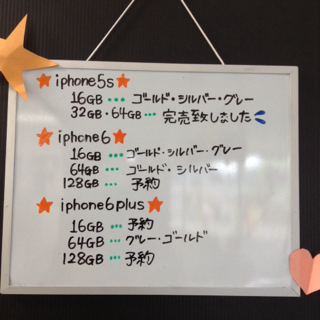 ★iphone5s★
16GB ••• ゴールド・シルバー・グレー
32GB・64GB ••• 完売致しました
★iphone6★
16GB ••• ゴールド・シルバー・グレー
64GB ••• ゴールド・シルバー
128GB ••• 予約
★iphone6plus★
16GB ••• 予約
64GB ••• グレー・ゴールド
128GB ••• 予約